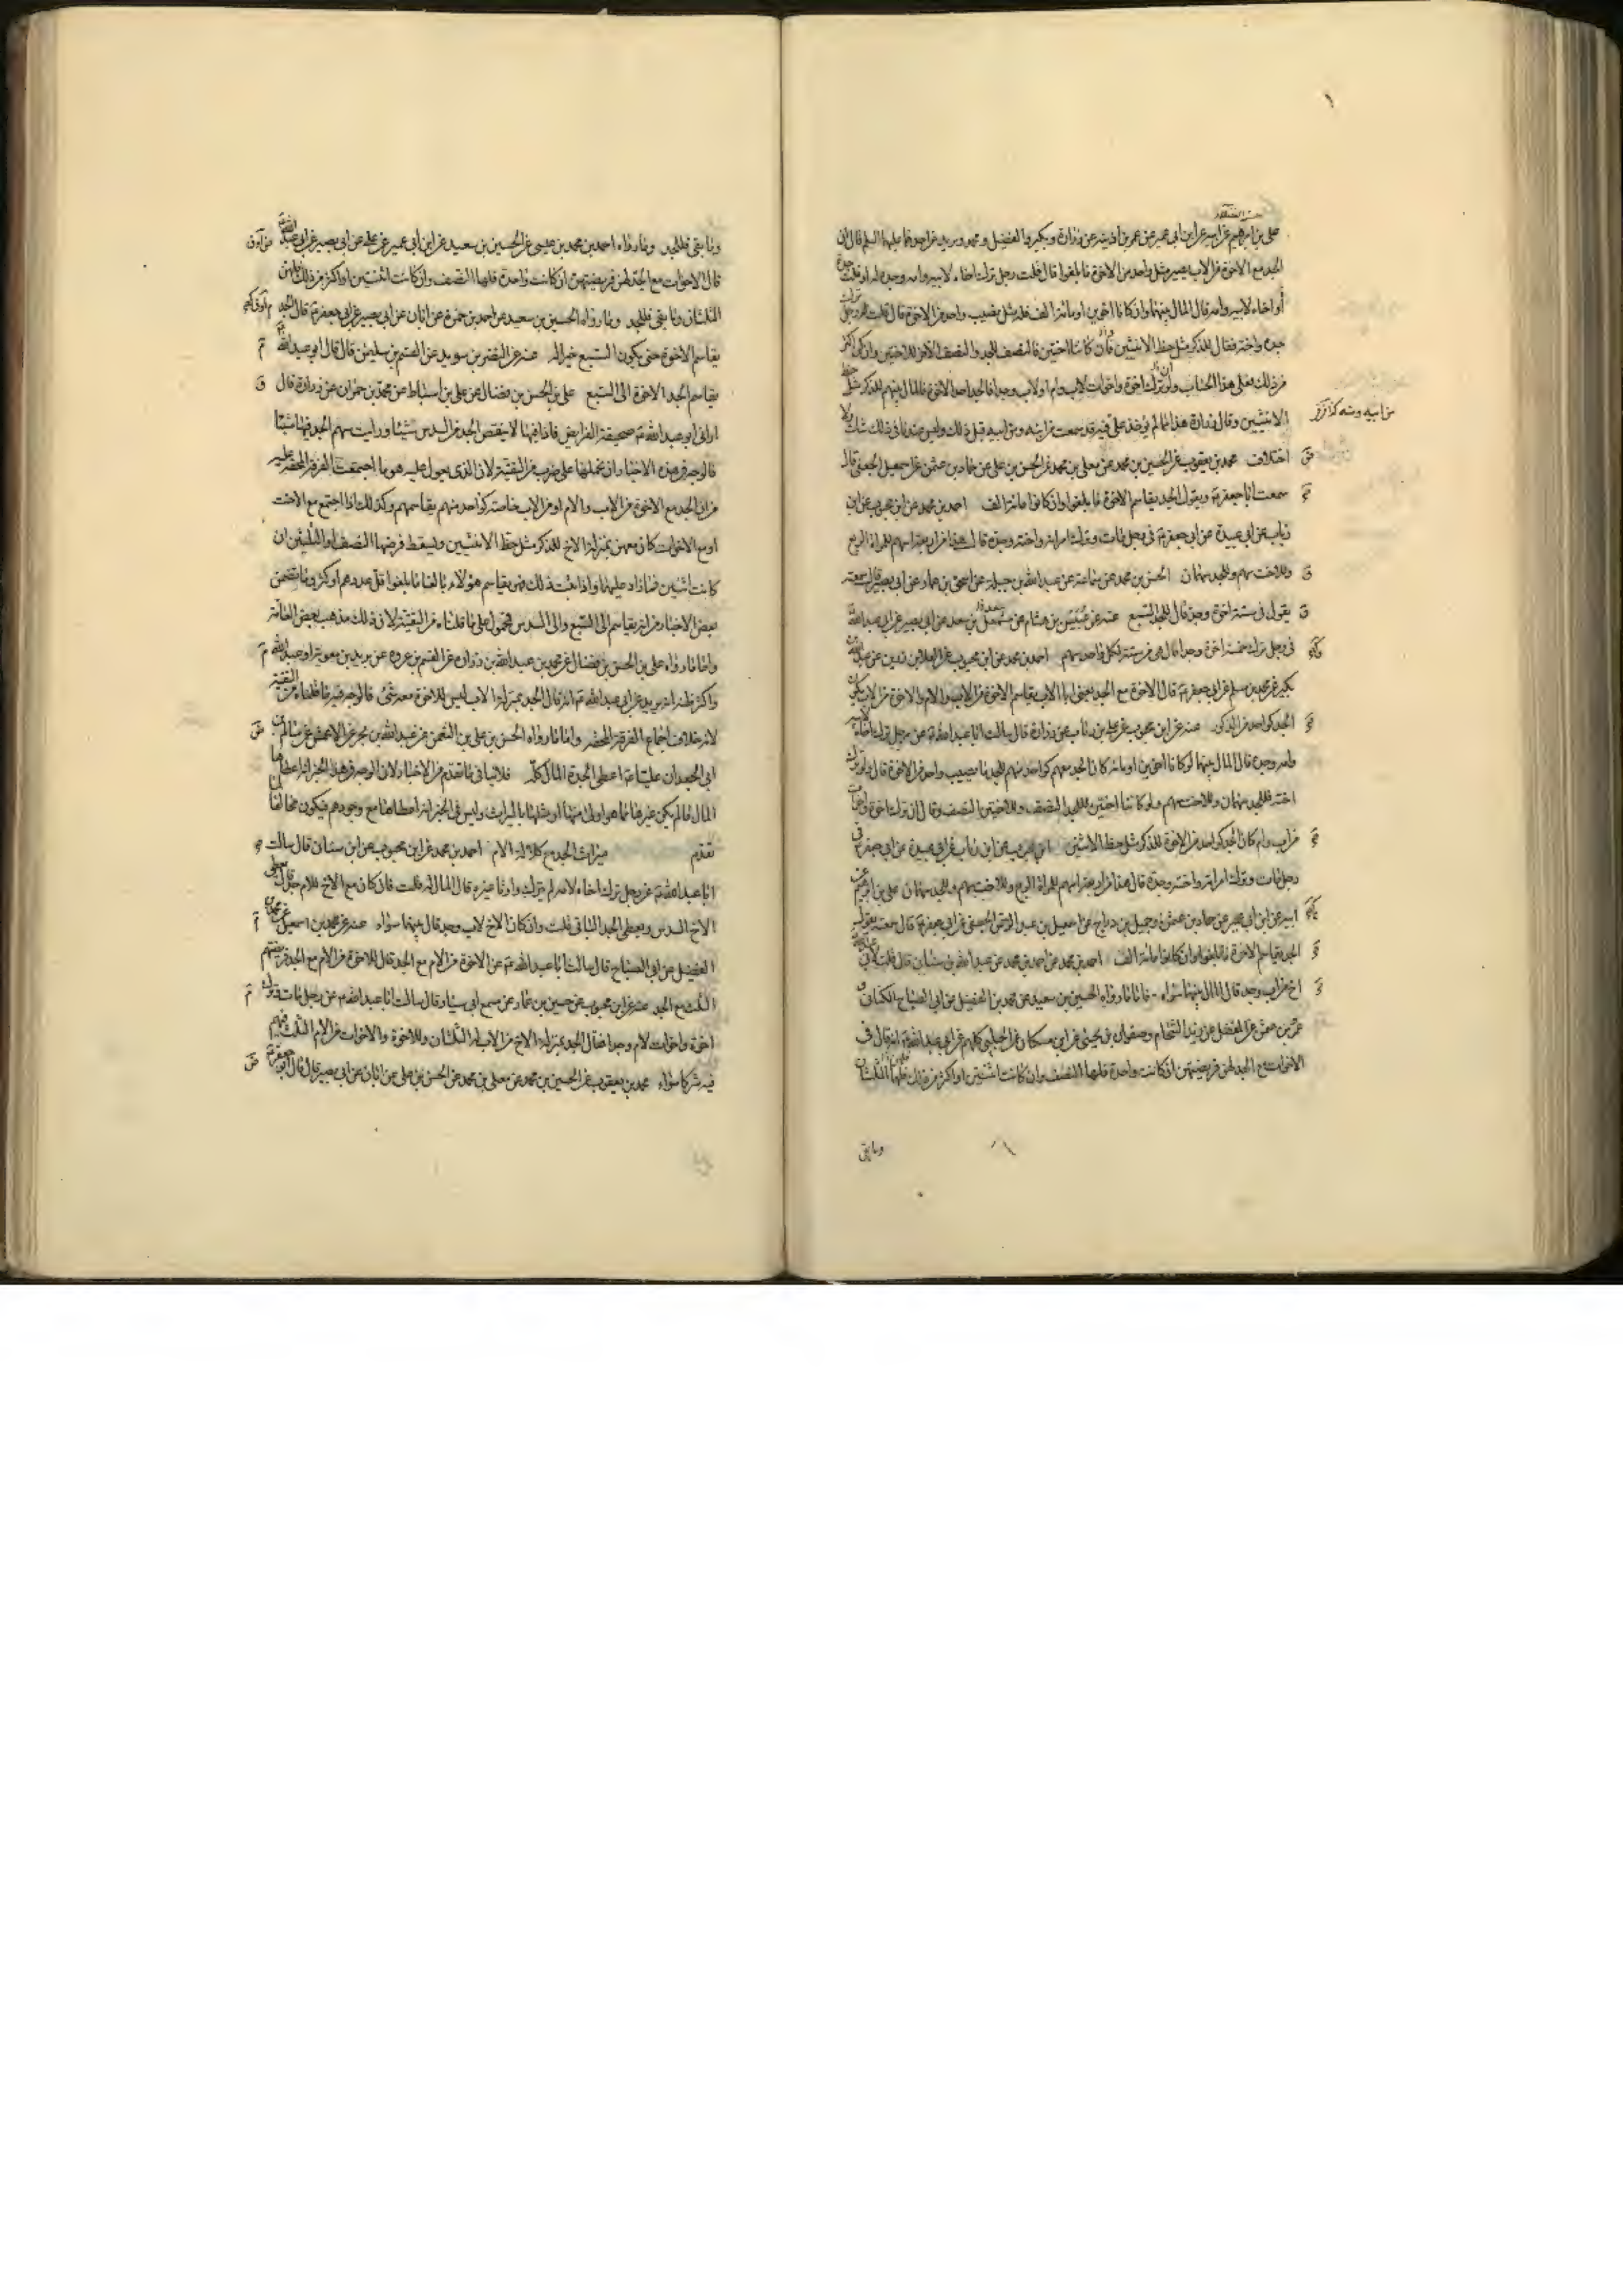 علي بن ابرهيم عن ابيه عن ابن ابي عمير عن عمر بن اذينه عن زرارة وبكير والفضيل ومحمد وبريد عن احدهما عليهما السلم قال ان
الجد مع الاخوة من الاب يصير مثل واحد من الاخوة ما بلغوا قال قلت رجل ترك اخاه لابيه وامه وجده او قلت جده
أو اخاه لابيه وامه قال المال بينهما وان كانا اخوين او مائة الف فله مثل نصيب واحد من الاخوة قال قلت رجل ترك
جده واخته فقال للذكر مثل حظ الانثيين وان كانتا اختين فالنصف للجد والنصف الاخر للاختين وان كن اكثر
من ذلك فعلى هذا الحساب وان ترك اخوة واخوات لاب وام او لاب وجدا فالجد احد الاخوة فالمال بينهم للذكر مثل حظ
الانثيين وقال زرارة هذا مما لم يؤخذ علي فيه قد سمعت من ابيه ومن ابيه قبل ذلك وليس عندنا في ذلك شك ولا
من ابيه ومنه
اختلاف محمد بن يعقوب عن الحسين بن محمد عن معلى بن محمد عن الحسن بن علي عن حماد بن عثمن عن اسمعيل الجعفي قال
سمعت ابا جعفر ع يقول الجد يقاسم الاخوة ما بلغوا وان كانوا مائة الف احمد بن محمد عن ابن محبوب عن ابن
رئاب عن ابي عبيدة عن ابي جعفر ع في رجل مات وترك امراته واخته وجده قال هذا من اربعة اسهم للمراة الربع
وللاخت سهم وللجد سهمان الحسن بن محمد بن سماعة عن عبد الله بن جبلة عن اسحق بن عمار عن ابي بصير قال سمعته
يقول في ستة اخوة وجد قال للجد السبع عنه عن عبيس بن هشام عن مشمعل بن سعد عن ابي بصير عن ابي عبد الله
في رجل ترك خمسة اخوة وجدا قال هي من ستة لكل واحد سهم احمد بن محمد عن ابن محبوب عن العلا بن رزين عن عبد الله بن
بكير عن محمد بن مسلم عن ابي جعفر ع قال الاخوة مع الجد يعني ابا الاب يقاسم الاخوة من الاب والام والاخوة من الاب يكون
الجد كواحد من الذكور عنه عن ابن محبوب عن علي بن رئاب عن زرارة قال سالت ابا عبد الله ع عن رجل ترك اخاه لابيه
وامه وجده قال المال بينهما ولو كانا اخوين او مائة كان الجد معهم كواحد منهم للجد ما يصيب واحد من الاخوة قال ولو ترك
اخته فللجد سهمان وللاخت سهم ولو كانتا اختين فللجد النصف وللاختين النصف وقال ان ترك اخوة واخوات
من اب وام كان الجد كواحد من الاخوة للذكر مثل حظ الانثيين ابن محبوب عن ابن رئاب عن ابي عبيدة عن ابي جعفر ع في
رجل مات وترك امراته واخته وجده قال هذا من اربعة اسهم للمراة الربع وللاخت سهم وللجد سهمان علي بن ابرهيم عن
ابيه عن ابن ابي عمير عن حماد بن عثمن وجميل بن دراج عن اسمعيل بن عبد الرحمن الجعفي عن ابي جعفر ع قال سمعته يقول
الجد يقاسم الاخوة ما بلغوا وان كانوا مائة الف احمد بن محمد عن احمد بن محمد عن عبد الله بن سنان قال قلت لابي عبد الله
اخ من اب وجد قال المال بينهما سواء فاما ما رواه الحسين بن سعيد عن محمد بن الفضيل عن ابي الصباح الكناني و
عن المفضل عن زيد الشحام وصفوان بن يحيى عن ابن مسكان عن الحلبي كلهم عن ابي عبد الله ع انه قال في
الاخوات مع الجد لهن فريضتهن ان كانت واحدة فلها النصف وان كانت اثنتين او اكثر من ذلك فلهما الثلثان
وما بقي
وما بقي فللجد وما رواه احمد بن محمد بن عيسى عن الحسين بن سعيد عن ابن ابي عمير عن علي عن ابي بصير عن ابي عبد الله
قال الاخوات مع الجد لهن فريضتهن ان كانت واحدة فلها النصف وان كانت اثنتين او اكثر من ذلك فلهن
الثلثان وما بقي فللجد وما رواه الحسين بن سعيد عن احمد بن حمزة عن ابان عن ابي بصير عن ابي جعفر ع قال الجد
يقاسم الاخوة حتى يكون السبع خيرا له عنه عن النضر بن سويد عن القسم بن سليمن قال قال ابو عبد الله ع
يقاسم الجد الاخوة الى السبع علي بن الحسن بن فضال عن علي بن اسباط عن محمد بن حمران عن زرارة قال
اراني ابو عبد الله ع صحيفة الفرايض فاذا فيها لا ينقص الجد من السدس شيئا ورايت سهم الجد فيها مثبتا
فالوجه في هذه الاخبار ان نحملها على ضرب من التقية لان الذي يعول عليه هو ما اجتمعت الفرقة المحقة عليه
من ان الجد مع الاخوة من الاب والام او من الاب خاصة كواحد منهم يقاسمهم وكذلك اذا اجتمع مع الاخت
او مع الاخوات كان معهن بمنزلة الاخ للذكر مثل حظ الانثيين ويسقط فرضها النصف او الثلثين ان
كانت اثنتين فما زاد عليهما واذا ثبت ذلك فهو يقاسم هؤلاء بالغا ما بلغوا قل عددهم او كثر وما تضمن
بعض الاخبار من انه يقاسم الى السبع والى السدس محمول على ما قلناه من التقية لان ذلك مذهب بعض العامة
واما ما رواه علي بن الحسن بن فضال عن محمد بن عبد الله بن زرارة عن القسم بن عروة عن بريد بن معوية او عبد الله
واكثر ظنه انه بريد عن ابي عبد الله ع انه قال الجد بمنزلة الاب ليس للاخوة معه شئ فالوجه فيه ما قلناه من التقية
لانه خلاف اجماع الفرقة المحقة واما ما رواه الحسن بن علي بن النعمن عن عبد الله بن بحر عن الاعمش عن سالم بن
ابي الجعد ان عليا ع اعطى الجدة المال كله فلا ينافي ما تقدم من الاخبار لان الوجه في هذا الخبر انه اعطاها
المال لما لم يكن غيرها مما هو اولى منها او مثلها بالميراث وليس في الخبر انه اعطاها مع وجودهم فيكون مخالفا لما
تقدم ميراث الجد مع كلالة الام احمد بن محمد عن ابن محبوب عن ابن سنان قال سالت
ابا عبد الله ع عن رجل ترك اخاه لامه لم يترك وارثا غيره قال المال له قلت فان كان مع الاخ للام جد قال يعطى
الاخ السدس ويعطى الجد الباقي قلت وان كان الاخ لاب وجد قال بينهما سواء عنه عن محمد بن اسمعيل عن محمد بن
الفضيل عن ابي الصباح قال سالت ابا عبد الله ع عن الاخوة من الام مع الجد قال للاخوة من الام مع الجد فريضتهم
الثلث مع الجد عنه عن ابن محبوب عن حسين بن عمارة عن مسمع ابي سيار قال سالت ابا عبد الله ع عن رجل مات وترك
اخوة واخوات لام وجدا فقال الجد بمنزلة الاخ من الاب له الثلثان وللاخوة والاخوات من الام الثلث فهم
فيه شركا سواء محمد بن يعقوب عن الحسين بن محمد عن معلى بن محمد عن الحسن بن علي عن ابان عن ابي بصير قال قال ابو جعفر ع